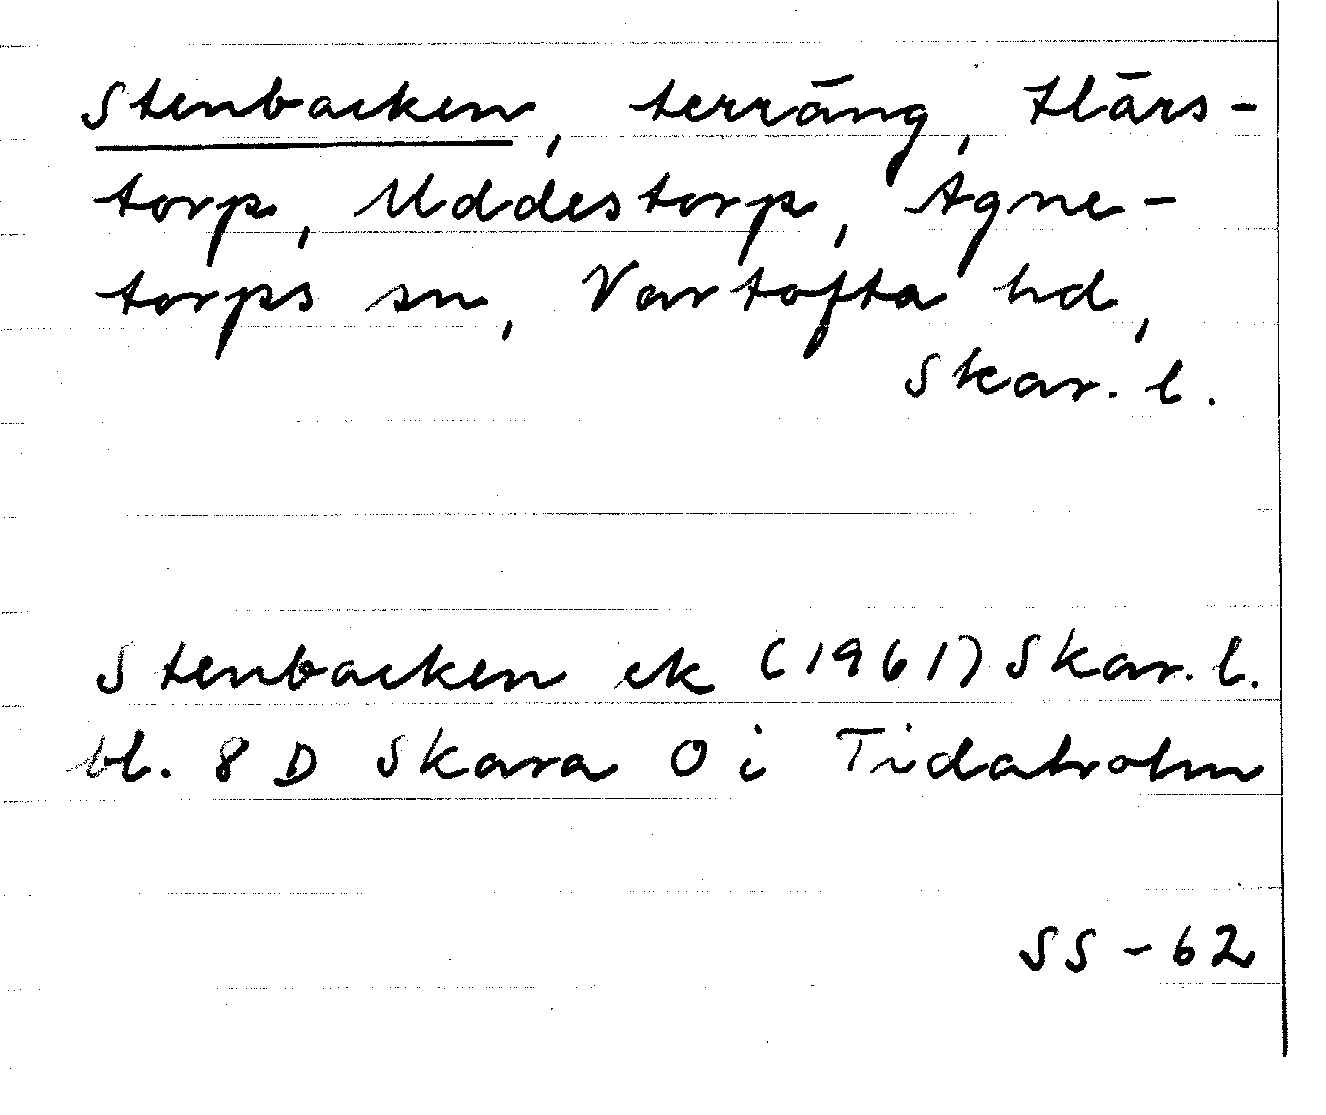 Stenbacken, terräng, Härs-
torp, Uddestorp, Agne-
torps sn, Vartofta hd,
Skar. l.
Stenbacken ek (1961) Skar. l.
bl. 8 D Skara O i Tidaholm
SS - 62